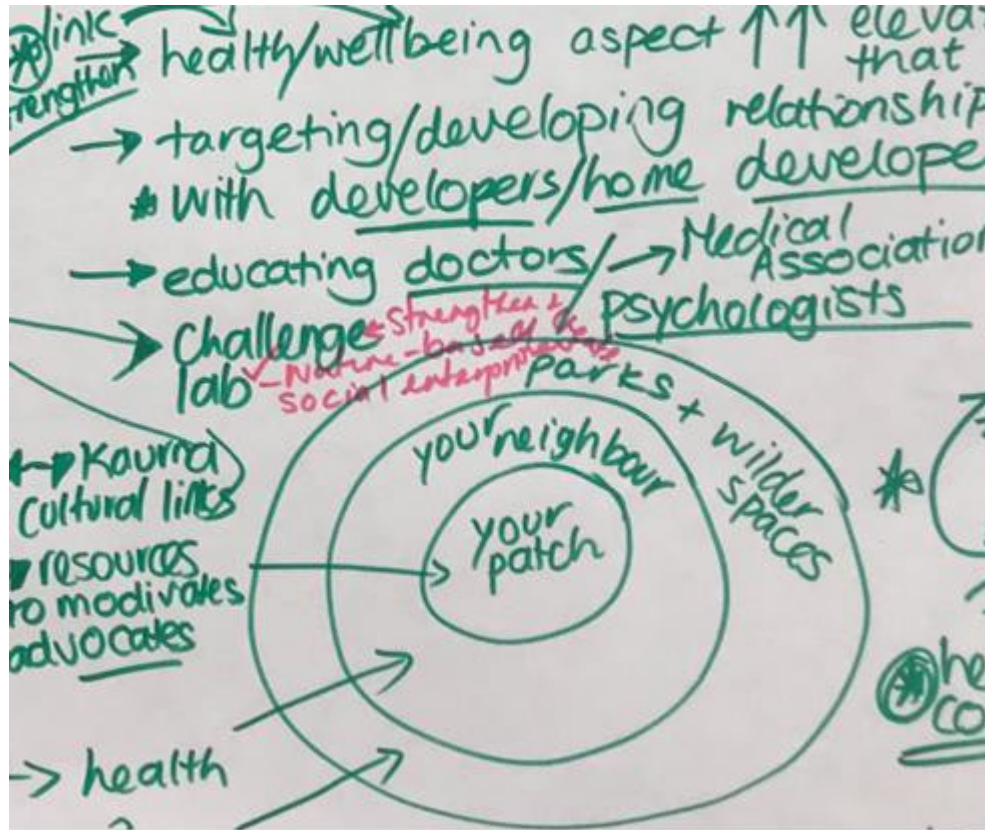 link
health/wellbeing aspect ↑↑ eleva
that
rengthen
→ targeting/developing relationship
* with developers/home develope
→ educating doctors/ → Medical
Association
psychologists
Challenge
lab
strengthen +
- Nature-based
social enterprise
parks + wilder
spaces
your neighbour
your
patch
Kaurna
cultural links
resources
to modivates
advocates
→ health
he
co